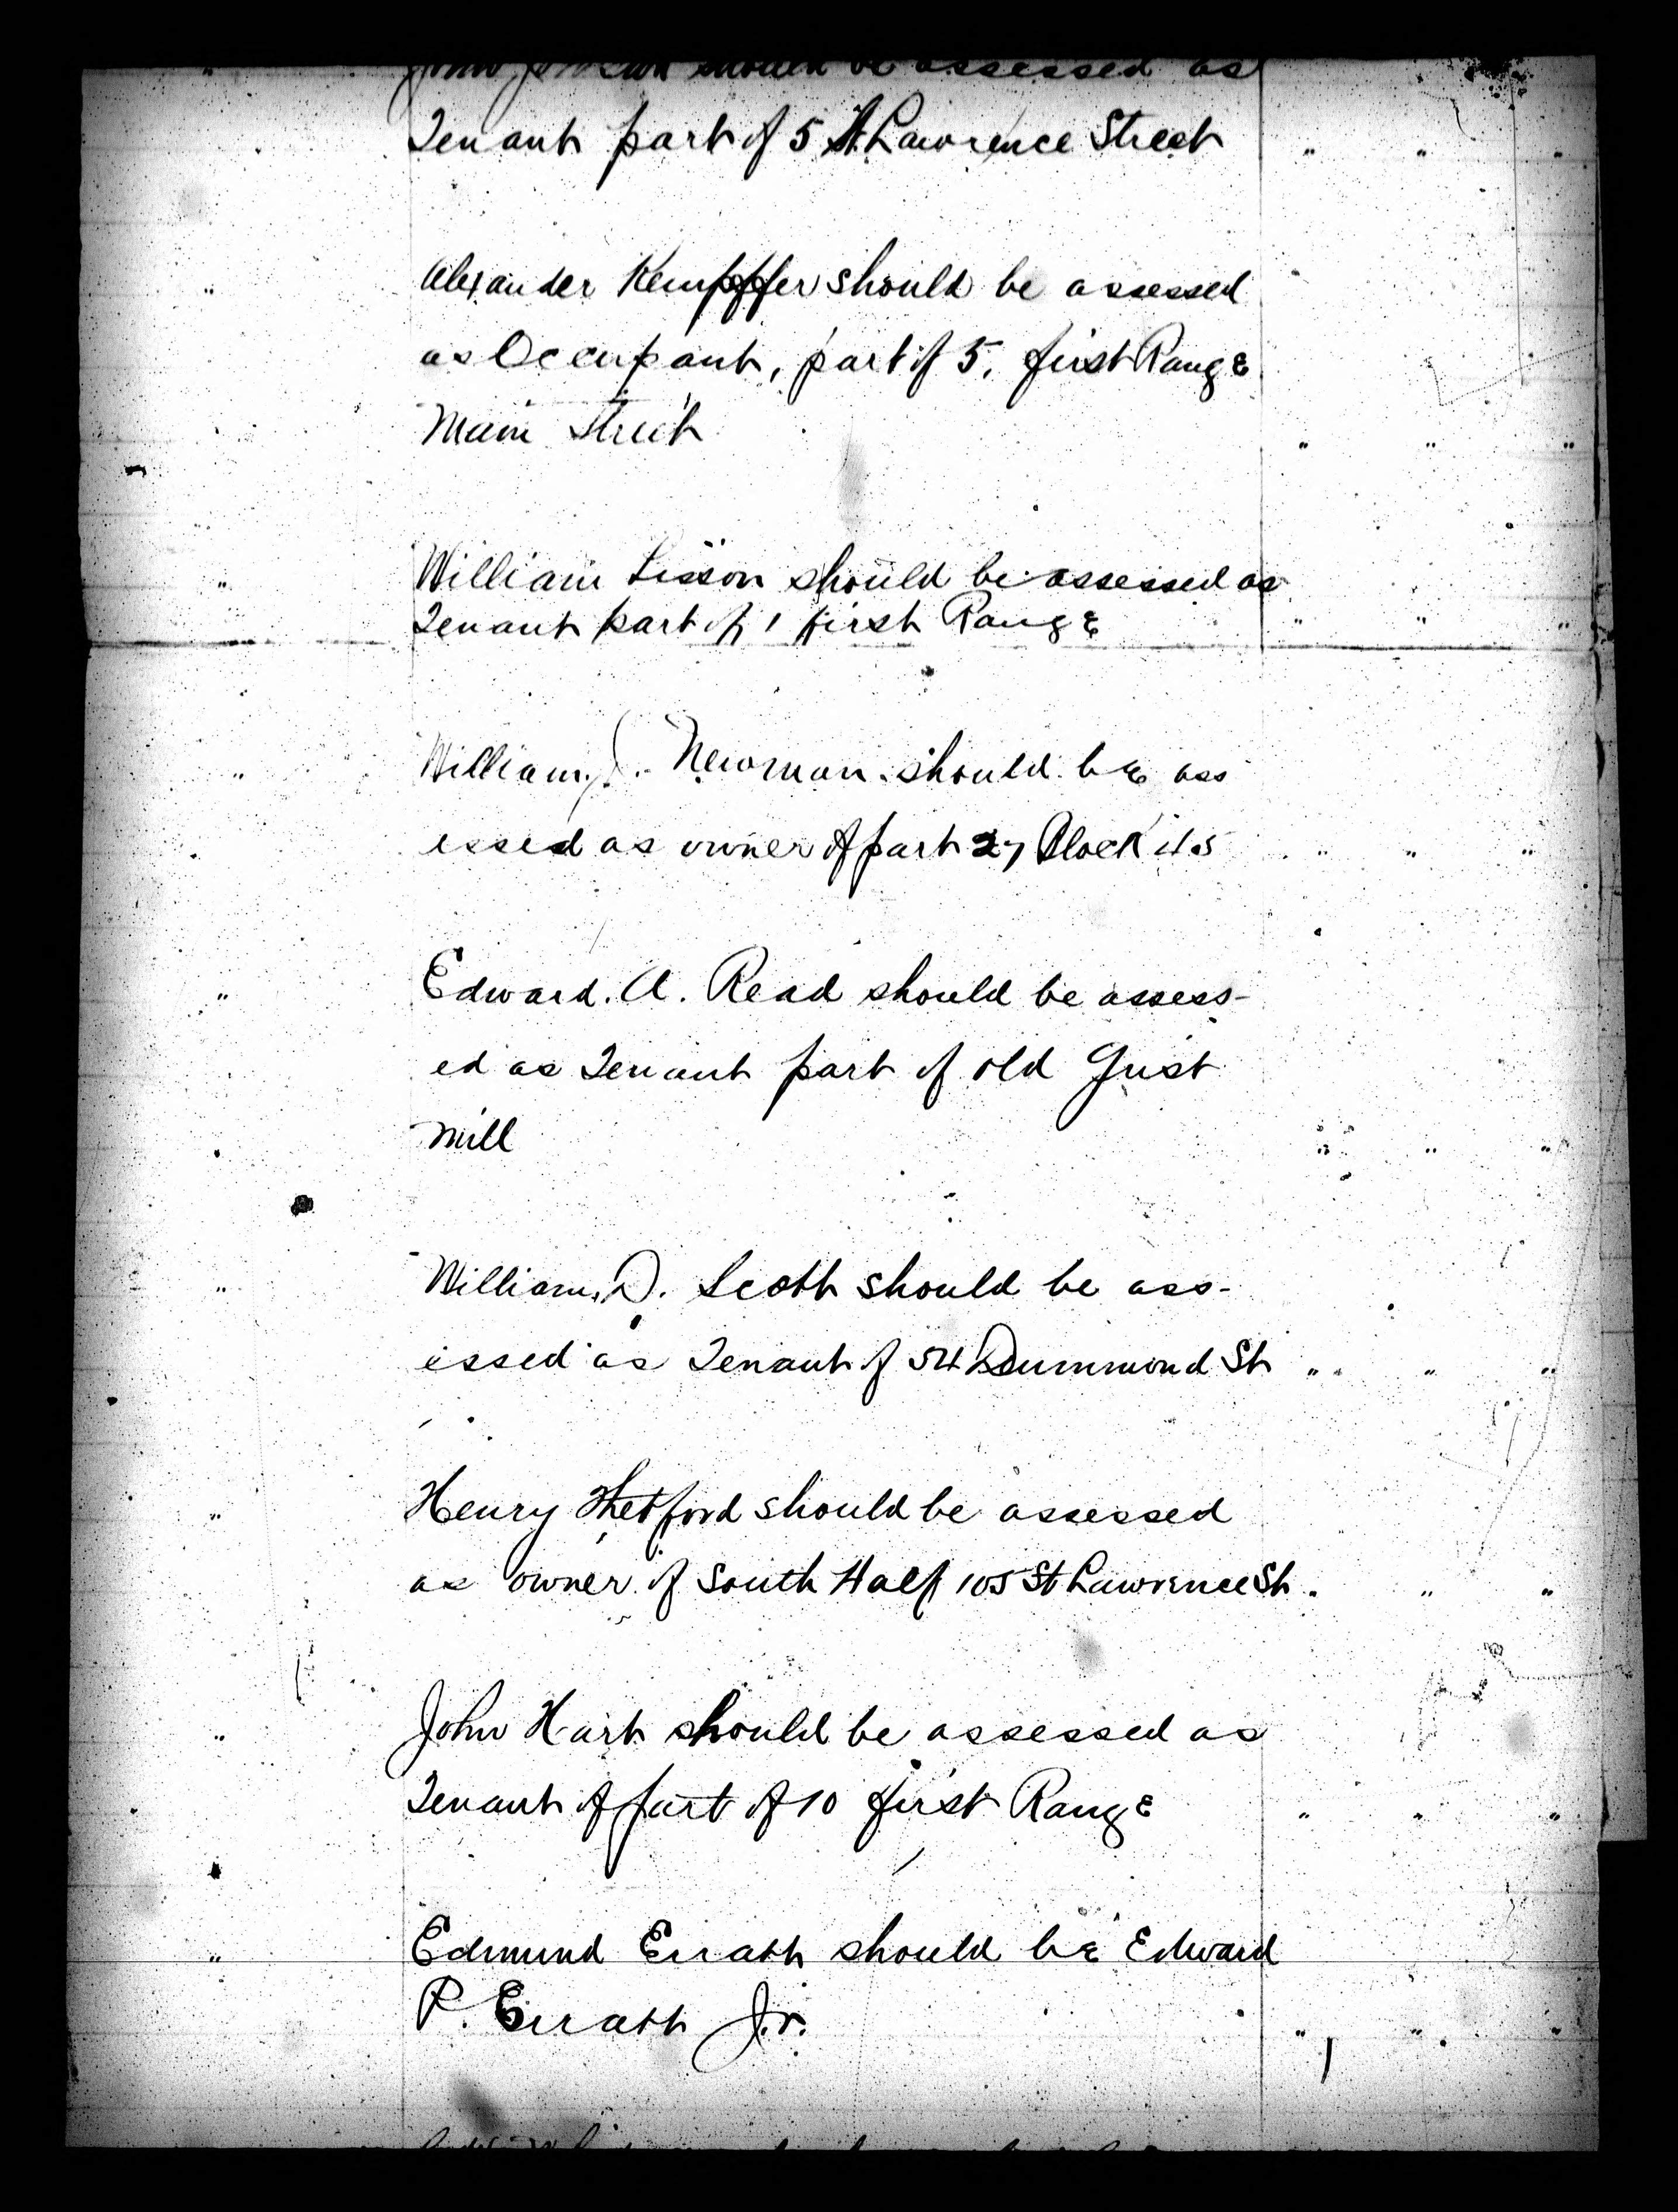 should be assessed as
Tenant part of 5 St Lawrence Street " " "
" Alexander Kempffer should be assessed
as Occupant, part of 5. first Range
Main Street " " "
" William Sisson should be assessed as
Tenant part of 1 first Range " " "
" William J. Newman should be ass
essed as owner of part 27 Block " " "
" Edward. A. Read should be assess-
ed as Tenant part of old Grist
Mill " " "
" William. D. Scott should be ass-
essed as Tenant of 54 Drummond St " " "
" Henry Thetford should be assessed
as owner of South Half 105 St Lawrence St " " "
" John Hart should be assessed as
Tenant of part of 10 first Range " " "
" Edmund Erratt should be Edward
P. Erratt Jr. " " "